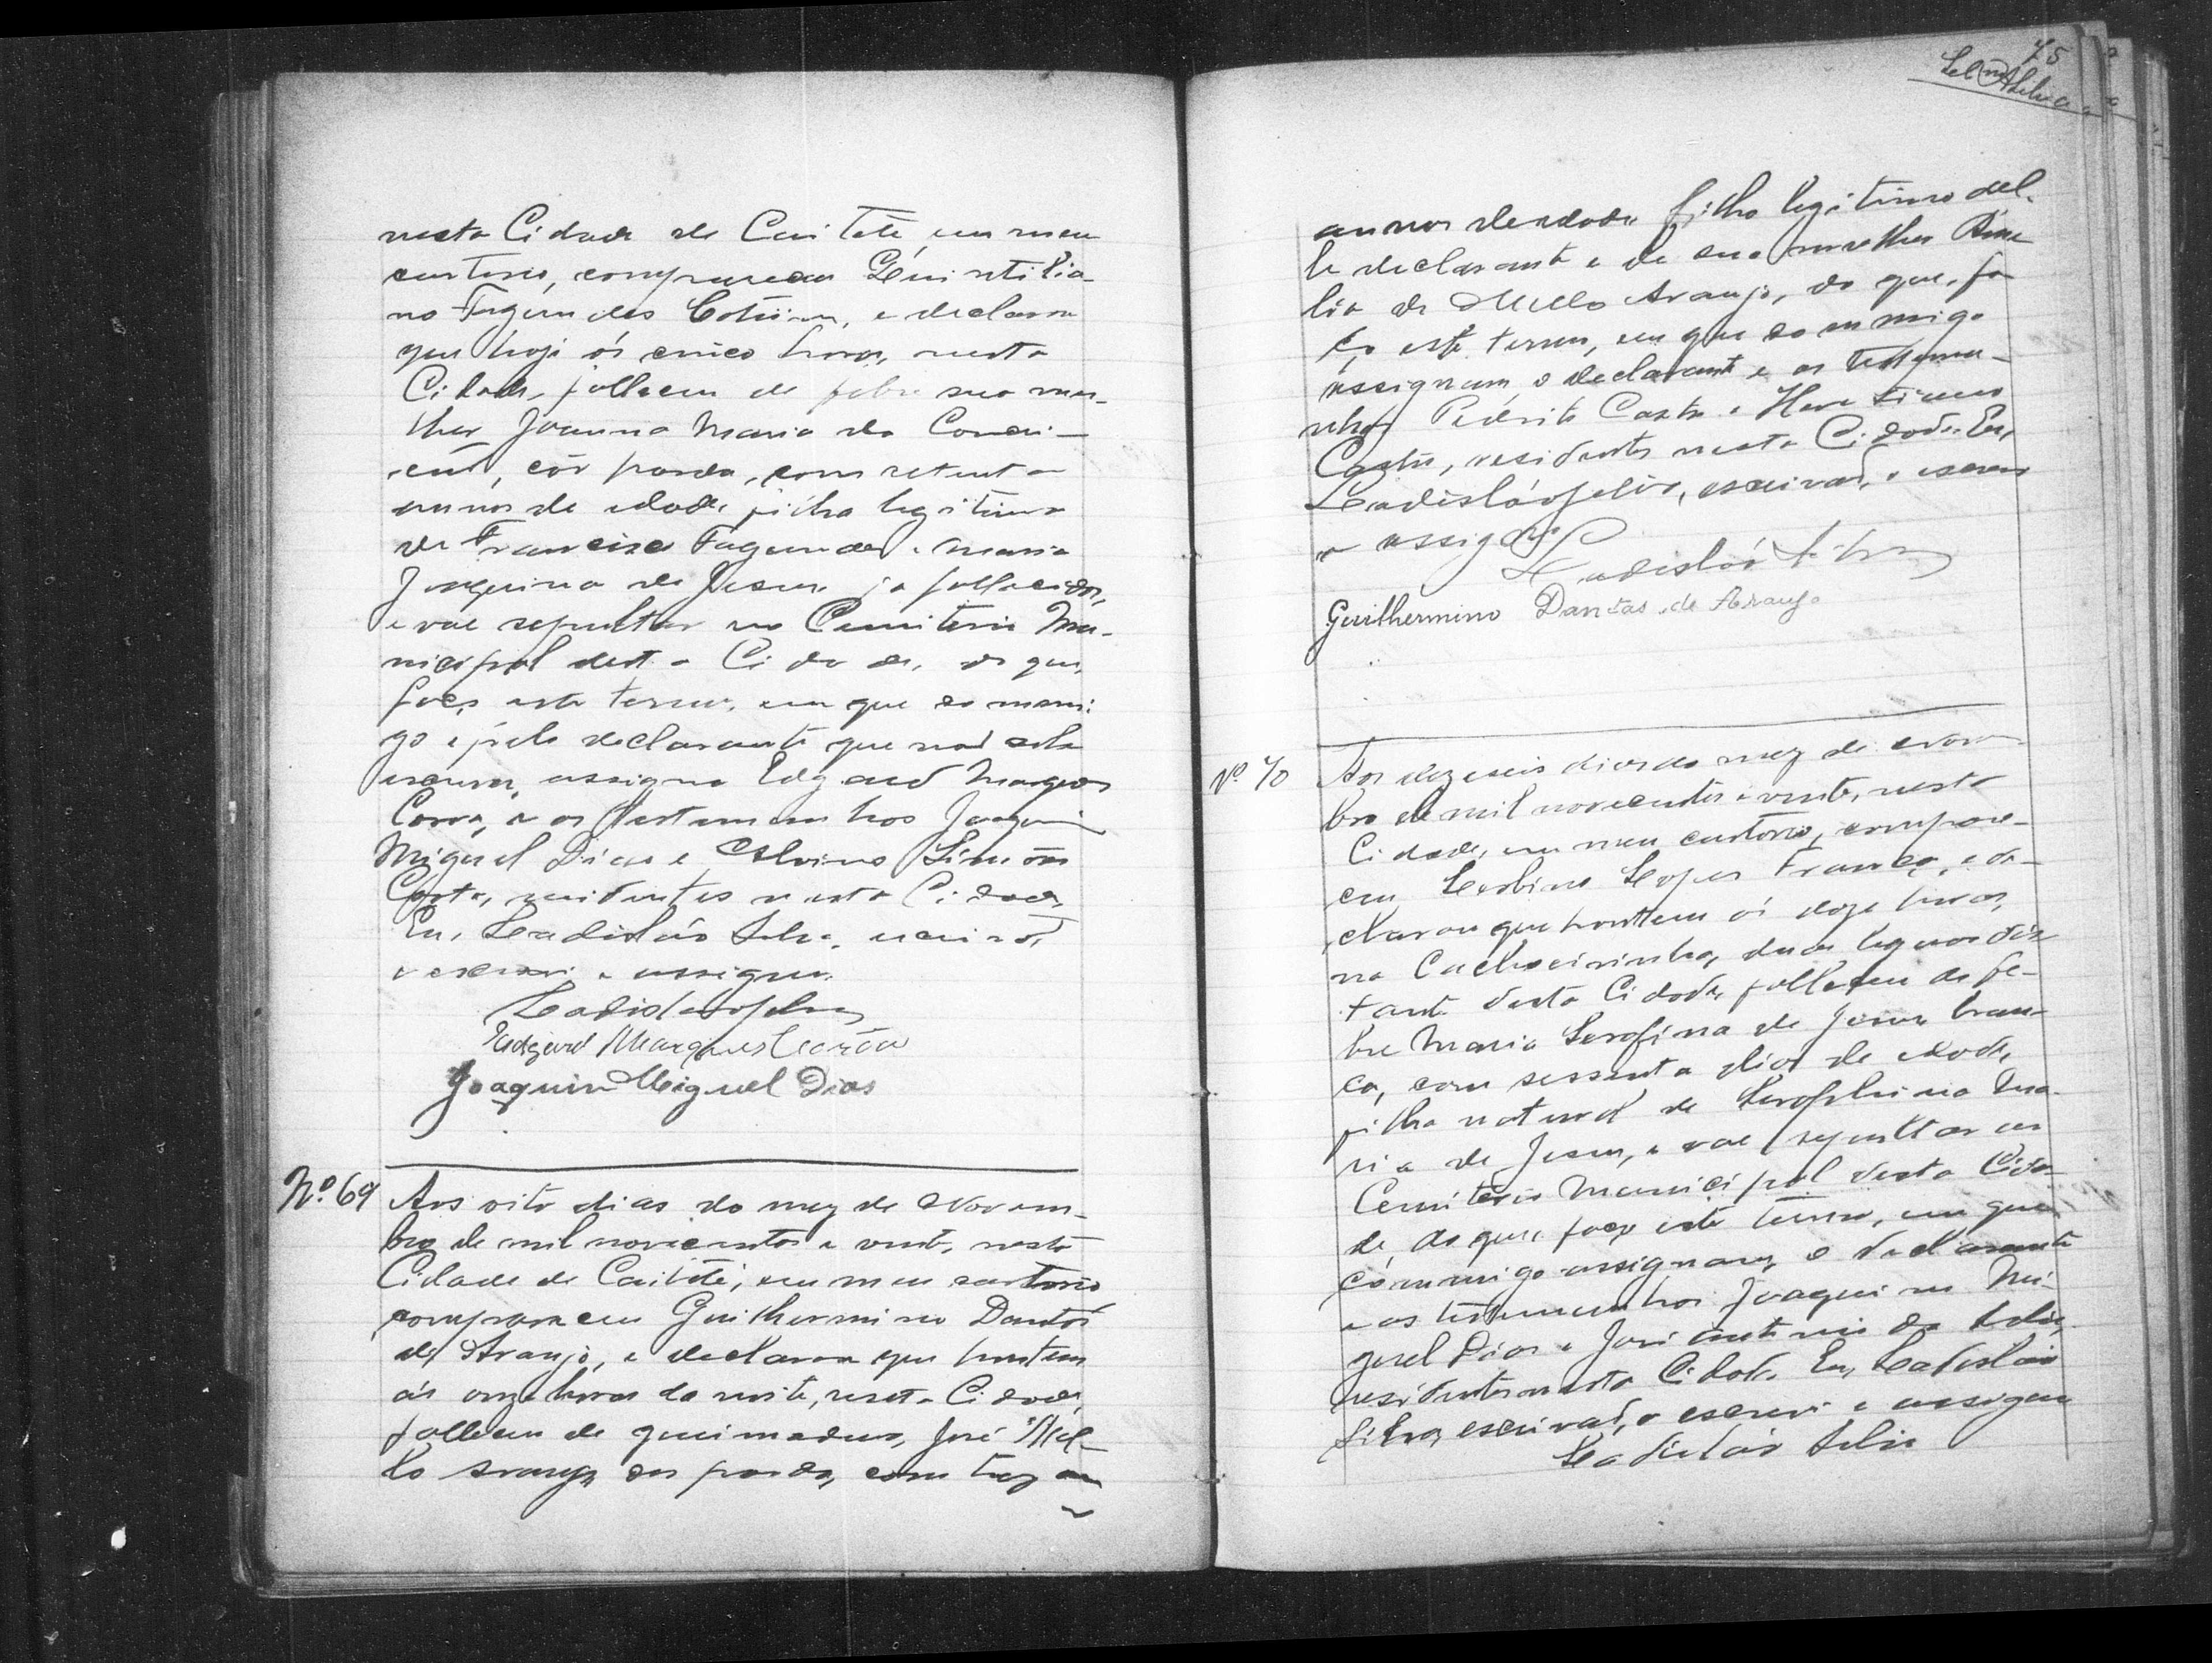 nesta Cidade de Caiteté, em meu
cartorio, compareceu Quintilia-
no Fagundes Cotrim, e declarou
que hoje ás cinco horas, nesta
Cidade, falleceu de febre sua mu-
lher Joanna Maria da Concei-
ção, côr parda, com setenta
annos de edade, filha legitima
de Francisco Fagundes e Maria
Joaquina de Jesus, já fallecidos,
e vae sepultar no Cemiterio Mu-
nicipal desta Cidade, do que,
faço este termo, em que commi-
go e pelo declarante que não sabe
escrever, assigna Edgard Marques
e as testemunhas Joaquim
Miguel Dias e Simões
Costa, residentes nesta Cidade.
Eu, Ladisláo Silva, escrivão,
o escrevi e assigno.
Ladisláo Silva
Edgard Marques
Joaquim Miguel Dias
Nº 69 Aos oito dias do mez de Novem-
bro de mil novecentos e vinte, nesta
Cidade de Caiteté, em meu cartorio
compareceu Guilhermino Dantas
de Araujo, e declarou que hontem
ás onze horas da noite, nesta Cidade,
falleceu de queimadura, José Mel-
lo Araujo, cor parda, com trez
75
Sel Silva
annos de edade, filho legitimo del-
le declarante e de sua mulher
de Mello Araujo, do que, fa-
ço este termo, em que commigo
assignam, o declarante e as testemu-
nhas Castro e
Castro, residentes nesta Cidade. Eu,
Ladisláo Silva, escrivão, o escrevi
e assigno.
Ladisláo Silva
Guilhermino Dantas de Araujo
Nº 70 Aos dezeseis dias do mez de Novem-
bro de mil novecentos e vinte, nesta
Cidade, em meu cartorio, compare-
ceu Lopes França, e de-
clarou que hontem ás doze horas,
na Cachoeirinha, duas leguas dis-
tante desta Cidade, falleceu de fe-
bre Maria Serafina de Jesus, bran-
ca, com sessenta dias de edade,
filha natural de Seraphina Ma-
ria de Jesus, e vae sepultar no
Cemiterio Municipal desta Cida-
de, do que, faço este termo, em que
commigo assignam, o declarante
e as testemunhas Joaquim Mi-
guel Dias e José Antonio da Silva,
residentes nesta Cidade. Eu, Ladisláo
Silva, escrivão, o escrevi e assigno
Ladisláo Silva